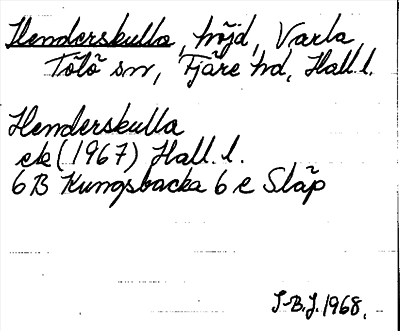 Henderskulla, höjd, Varla,
Tölö sn, Fjäre hd, Hall. l.
Henderskulla
ek (1967) Hall. l.
6B Kungsbacka 6 e Släp
I-B.J. 1968.